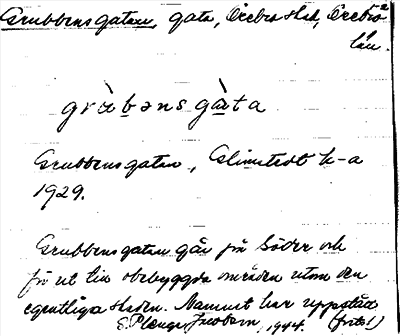 Grubbensgatan, gata, Örebro stad, Örebro
län.
grùbənsgàta
Grubbensgatan, k-a
1929.
Grubbensgatan går på Söder och
för ut till obebyggda områden utom den
egentliga staden. Namnet har uppstått
E. Jacobson, 1944. (forts.)